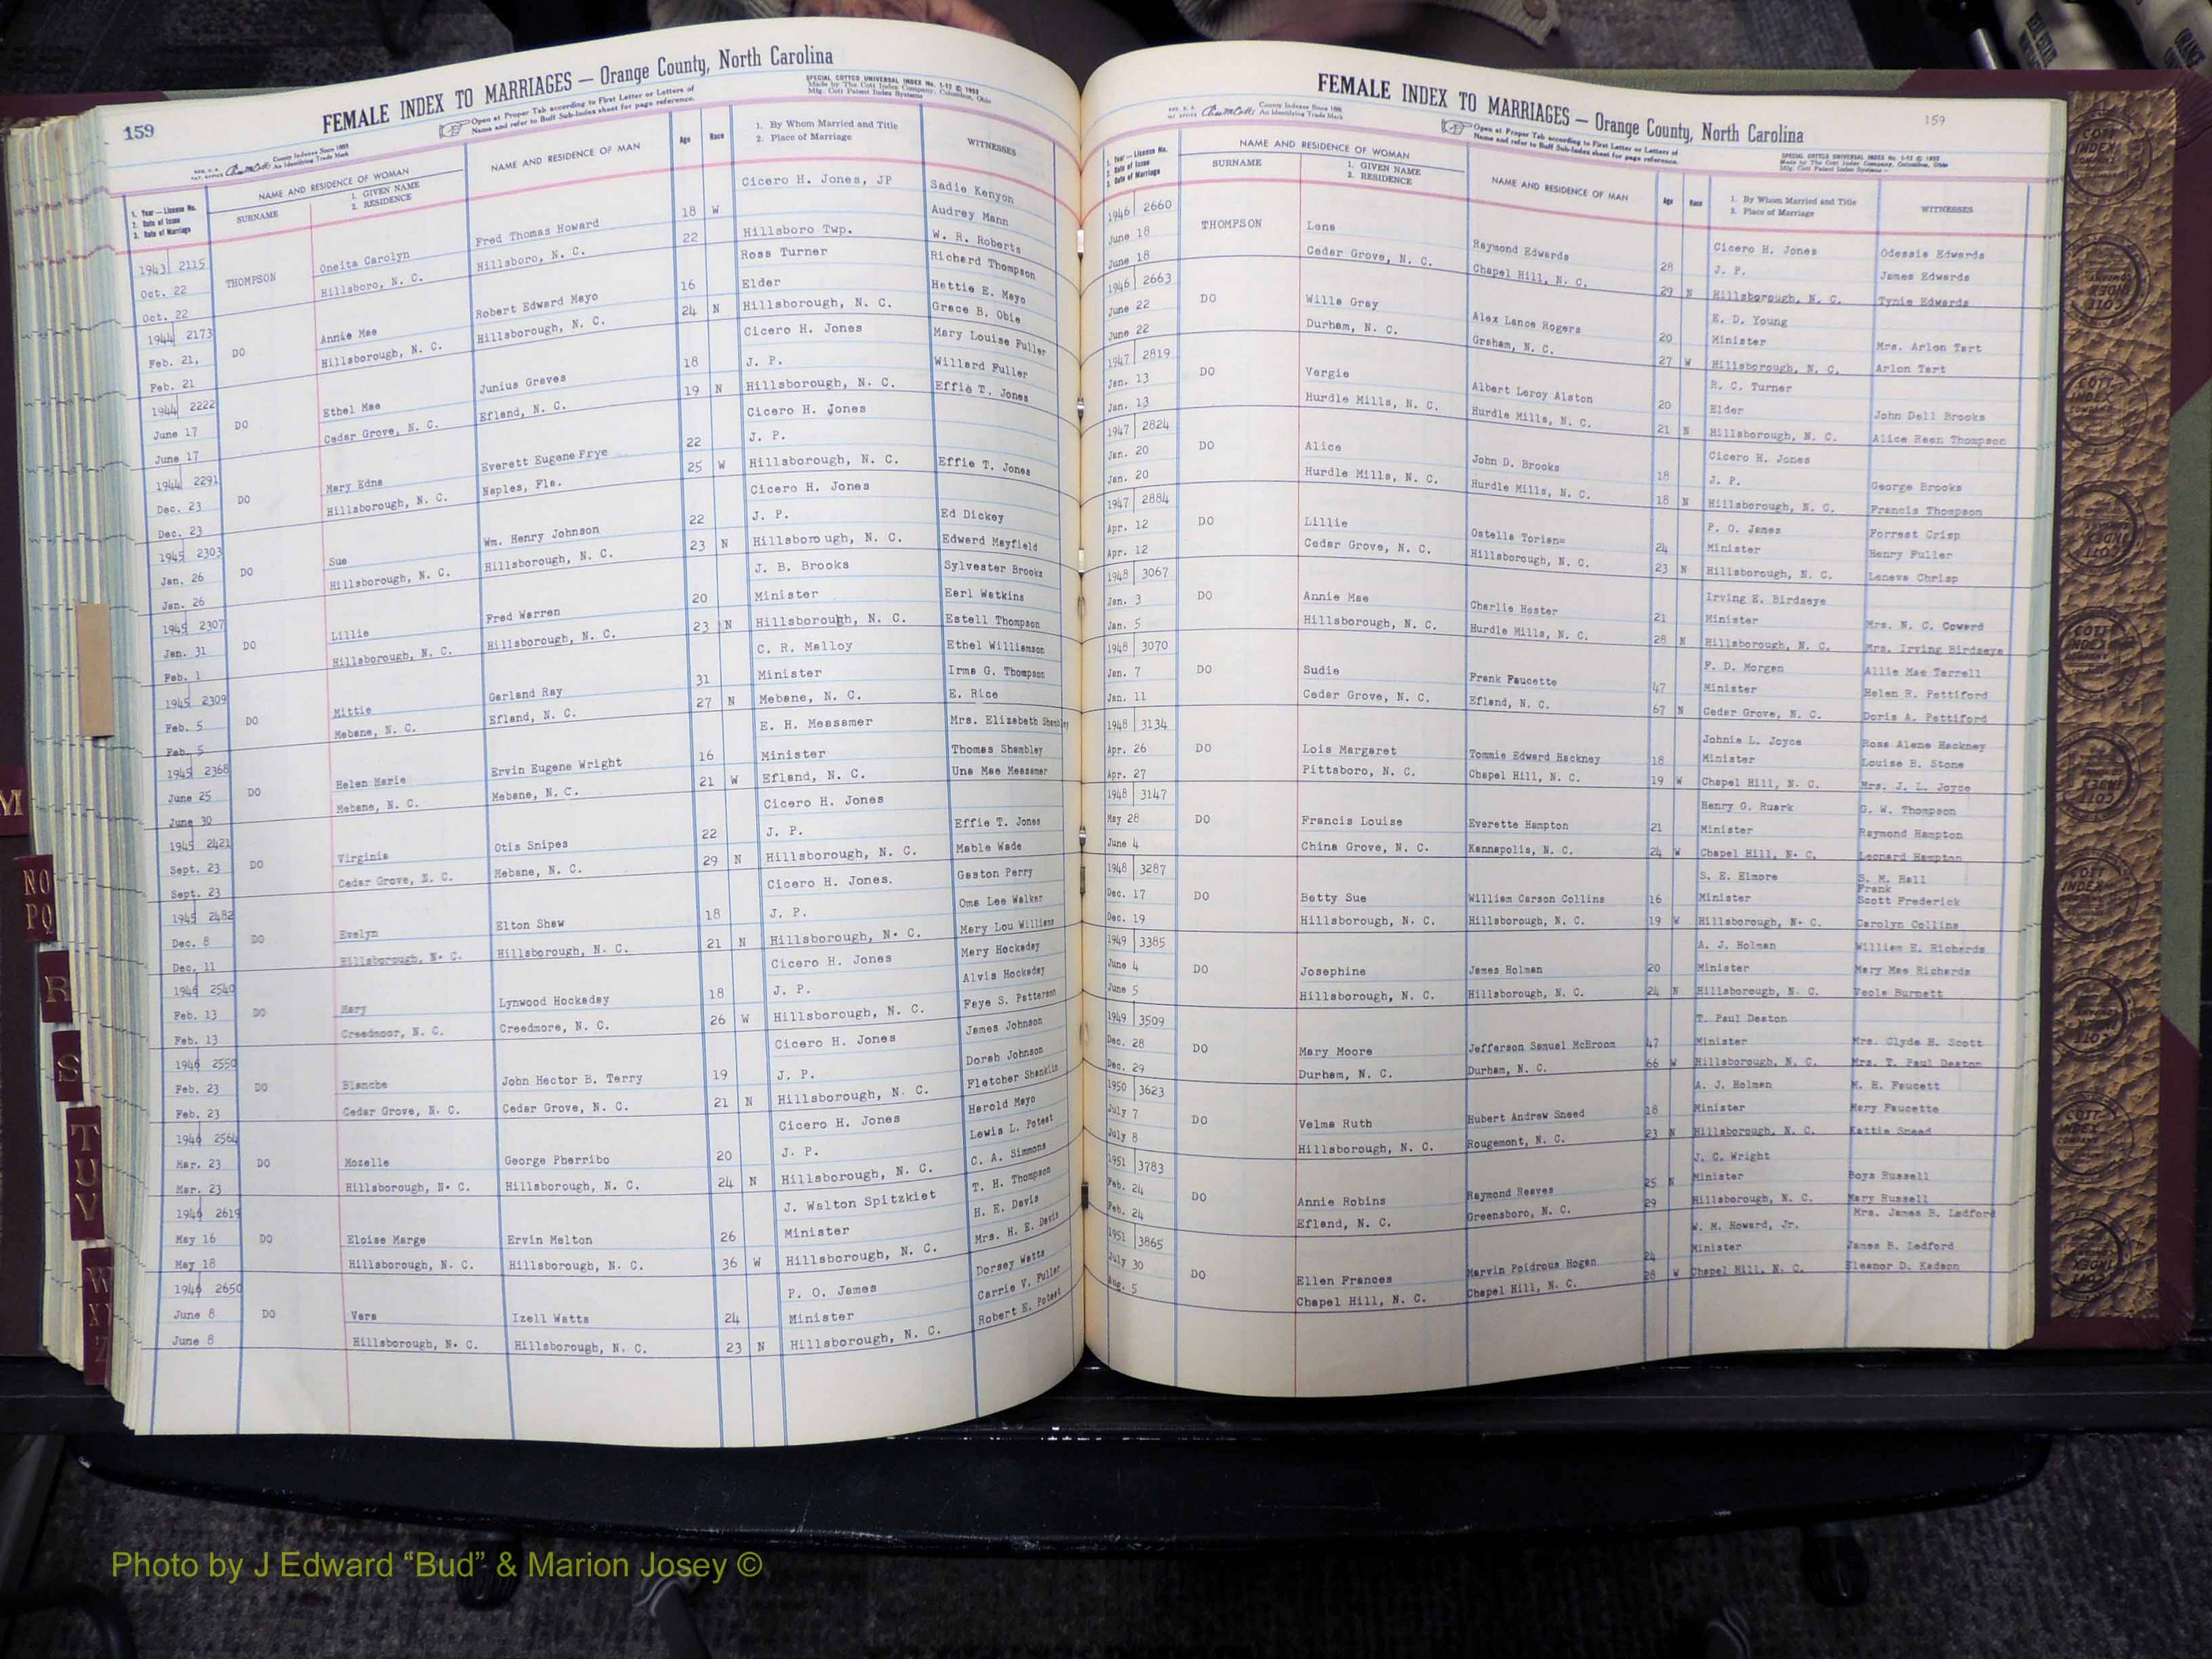 159
FEMALE INDEX TO MARRIAGES — Orange County, North Carolina
Open at Proper Tab according to First Letter or Letters of
Name and refer to Buff Sub-Index sheet for page reference.
SPECIAL COTTCO UNIVERSAL INDEX No. 1-12 © 1953
Made by The Cott Index Company, Columbus, Ohio
Mfg. Cott Patent Index Systems
County Indexes Since 1888
An Identifying Trade Mark
1. Year — License No.
2. Date of Issue
3. Date of Marriage
NAME AND RESIDENCE OF WOMAN
SURNAME
1. GIVEN NAME
2. RESIDENCE
NAME AND RESIDENCE OF MAN
Age
Race
1. By Whom Married and Title
2. Place of Marriage
WITNESSES
1943 2115 Oneita Carolyn Fred Thomas Howard 18 W Cicero H. Jones, JP Sadie Kenyon
Oct. 22 THOMPSON Hillsboro, N. C. Hillsboro, N. C. 22 Hillsboro Twp. Audrey Mann
Oct. 22 Ross Turner W. R. Roberts
1944 2173 Annie Mae Robert Edward Mayo 16 Elder Richard Thompson
Feb. 21, DO Hillsborough, N. C. Hillsborough, N. C. 24 N Hillsborough, N. C. Hettie E. Mayo
Feb. 21 Cicero H. Jones Grace B. Obie
1944 2222 Ethel Mae Junius Graves 18 J. P. Mary Louise Fuller
June 17 DO Cedar Grove, N. C. Efland, N. C. 19 N Hillsborough, N. C. Willard Fuller
June 17 Cicero H. Jones Effie T. Jones
1944 2291 Mary Edna Everett Eugene Frye 22 J. P.
Dec. 23 DO Hillsborough, N. C. Naples, Fla. 25 W Hillsborough, N. C. Effie T. Jones
Dec. 23 Cicero H. Jones
1945 2303 Sue Wm. Henry Johnson 22 J. P. Ed Dickey
Jan. 26 DO Hillsborough, N. C. Hillsborough, N. C. 23 N Hillsboro ugh, N. C. Edward Mayfield
Jan. 26 J. B. Brooks Sylvester Brooks
1945 2307 Lillie Fred Warren 20 Minister Earl Watkins
Jan. 31 DO Hillsborough, N. C. Hillsborough, N. C. 23 N Hillsborough, N. C. Estell Thompson
Feb. 1 C. R. Malloy Ethel Williamson
1945 2309 Mittie Garland Ray 31 Minister Irma G. Thompson
Feb. 5 DO Mebane, N. C. Efland, N. C. 27 N Mebane, N. C. E. Rice
Feb. 5 E. H. Messamer Mrs. Elizabeth Shambley
1945 2368 Helen Marie Ervin Eugene Wright 16 Minister Thomas Shambley
June 25 DO Mebane, N. C. Mebane, N. C. 21 W Efland, N. C. Una Mae Messamer
June 30 Cicero H. Jones
1945 2421 Virginia Otis Snipes 22 J. P. Effie T. Jones
Sept. 23 DO Cedar Grove, N. C. Mebane, N. C. 29 N Hillsborough, N. C. Mable Wade
Sept. 23 Cicero H. Jones. Gaston Perry
1945 2482 Evelyn Elton Shaw 18 J. P. Oma Lee Walker
Dec. 8 DO Hillsborough, N. C. Hillsborough, N. C. 21 N Hillsborough, N. C. Mary Lou Williams
Dec. 11 Cicero H. Jones Mary Hockaday
1946 2540 Mary Lynwood Hockaday 18 J. P. Alvis Hockaday
Feb. 13 DO Creedmoor, N. C. Creedmore, N. C. 26 W Hillsborough, N. C. Faye S. Patterson
Feb. 13 Cicero H. Jones James Johnson
1946 2550 Blanche John Hector B. Terry 19 J. P. Dorah Johnson
Feb. 23 DO Cedar Grove, N. C. Cedar Grove, N. C. 21 N Hillsborough, N. C. Fletcher Shanklin
Feb. 23 Cicero H. Jones Harold Mayo
1946 2564 Mozelle George Pherribo 20 J. P. Lewis L. Poteat
Mar. 23 DO Hillsborough, N. C. Hillsborough, N. C. 24 N Hillsborough, N. C. C. A. Simmons
Mar. 23 J. Walton Spitzkiet T. H. Thompson
1946 2619 Eloise Marge Ervin Melton 26 Minister H. E. Davis
May 16 DO Hillsborough, N. C. Hillsborough, N. C. 36 W Hillsborough, N. C. Mrs. H. E. Davis
May 18 P. O. James Dorsey Watts
1946 2650 Vera Izell Watts 24 Minister Carrie V. Fuller
June 8 DO Hillsborough, N. C. Hillsborough, N. C. 23 N Hillsborough, N. C. Robert E. Poteat
June 8
159
FEMALE INDEX TO MARRIAGES — Orange County, North Carolina
County Indexes Since 1888
An Identifying Trade Mark
Open at Proper Tab according to First Letter or Letters of
Name and refer to Buff Sub-Index sheet for page reference.
SPECIAL COTTCO UNIVERSAL INDEX No. 1-12 © 1953
Made by The Cott Index Company, Columbus, Ohio
Mfg. Cott Patent Index Systems
1. Year — License No.
2. Date of Issue
3. Date of Marriage
NAME AND RESIDENCE OF WOMAN
SURNAME
1. GIVEN NAME
2. RESIDENCE
NAME AND RESIDENCE OF MAN
Age
Race
1. By Whom Married and Title
2. Place of Marriage
WITNESSES
1946 2660 Lena Raymond Edwards 28 Cicero H. Jones Odessia Edwards
June 18 THOMPSON Cedar Grove, N. C. Chapel Hill, N. C. 29 N J. P. James Edwards
June 18 Hillsborough, N. C. Tynie Edwards
1946 2663 Willa Gray Alex Lance Rogers 20 E. D. Young
June 22 DO Durham, N. C. Graham, N. C. 27 W Minister Mrs. Arlon Tart
June 22 Hillsborough, N. C. Arlon Tart
1947 2819 Vergie Albert Leroy Alston 20 R. C. Turner
Jan. 13 DO Hurdle Mills, N. C. Hurdle Mills, N. C. 21 N Elder John Dell Brooks
Jan. 13 Hillsborough, N. C. Alice Reen Thompson
1947 2824 Alice John D. Brooks 18 Cicero H. Jones
Jan. 20 DO Hurdle Mills, N. C. Hurdle Mills, N. C. 18 N J. P. George Brooks
Jan. 20 Hillsborough, N. C. Francis Thompson
1947 2884 Lillie Ostelle Torian= 24 P. O. James Forrest Crisp
Apr. 12 DO Cedar Grove, N. C. Hillsborough, N. C. 23 N Minister Henry Fuller
Apr. 12 Hillsborough, N. C. Laneva Chrisp
1948 3067 Annie Mae Charlie Hester 21 Irving E. Birdseye
Jan. 3 DO Hillsborough, N. C. Hurdle Mills, N. C. 28 N Minister Mrs. N. C. Coward
Jan. 5 Hillsborough, N. C. Mrs. Irving Birdseye
1948 3070 Sudie Frank Faucette 47 F. D. Morgan Allie Mae Terrell
Jan. 7 DO Cedar Grove, N. C. Efland, N. C. 67 N Minister Helen R. Pettiford
Jan. 11 Cedar Grove, N. C. Doris A. Pettiford
1948 3134 Lois Margaret Tommie Edward Hackney 18 Johnie L. Joyce Rosa Alene Hackney
Apr. 26 DO Pittsboro, N. C. Chapel Hill, N. C. 19 W Minister Louise B. Stone
Apr. 27 Chapel Hill, N. C. Mrs. J. L. Joyce
1948 3147 Francis Louise Everette Hampton 21 Henry G. Ruark G. W. Thompson
May 28 DO China Grove, N. C. Kannapolis, N. C. 24 W Minister Raymond Hampton
June 4 Chapel Hill, N. C. Leonard Hampton
1948 3287 Betty Sue William Carson Collins 16 S. E. Elmore S. M. Hall
Dec. 17 DO Hillsborough, N. C. Hillsborough, N. C. 19 W Minister Frank Scott Frederick
Dec. 19 Hillsborough, N. C. Carolyn Collins
1949 3385 Josephine James Holman 20 A. J. Holman William E. Richards
June 4 DO Hillsborough, N. C. Hillsborough, N. C. 24 N Minister Mary Mae Richards
June 5 Hillsborough, N. C. Veola Burnett
1949 3509 Mary Moore Jefferson Samuel McBroom 47 T. Paul Deaton
Dec. 28 DO Durham, N. C. Durham, N. C. 66 W Minister Mrs. Clyde H. Scott
Dec. 29 Hillsborough, N. C. Mrs. T. Paul Deaton
1950 3623 Velma Ruth Hubert Andrew Sneed 18 A. J. Holman M. R. Faucett
July 7 DO Hillsborough, N. C. Rougemont, N. C. 23 N Minister Mary Faucette
July 8 Hillsborough, N. C. Kattie Snead
1951 3783 Annie Robins Raymond Reaves 25 N J. C. Wright
Feb. 24 DO Efland, N. C. Greensboro, N. C. 29 Minister Boyz Russell
Feb. 24 Hillsborough, N. C. Mary Russell
1951 3865 Ellen Frances Marvin Poidrous Hogan 24 W. M. Howard, Jr. Mrs. James B. Ledford
July 30 DO Chapel Hill, N. C. Chapel Hill, N. C. 28 W Minister James B. Ledford
Aug. 5 Chapel Hill, N. C. Eleanor D. Kadson
M
NO
PQ
R
S
T
U
V
W
X
Z
COTT
INDEX
COMPANY
Photo by J Edward “Bud” & Marion Josey ©